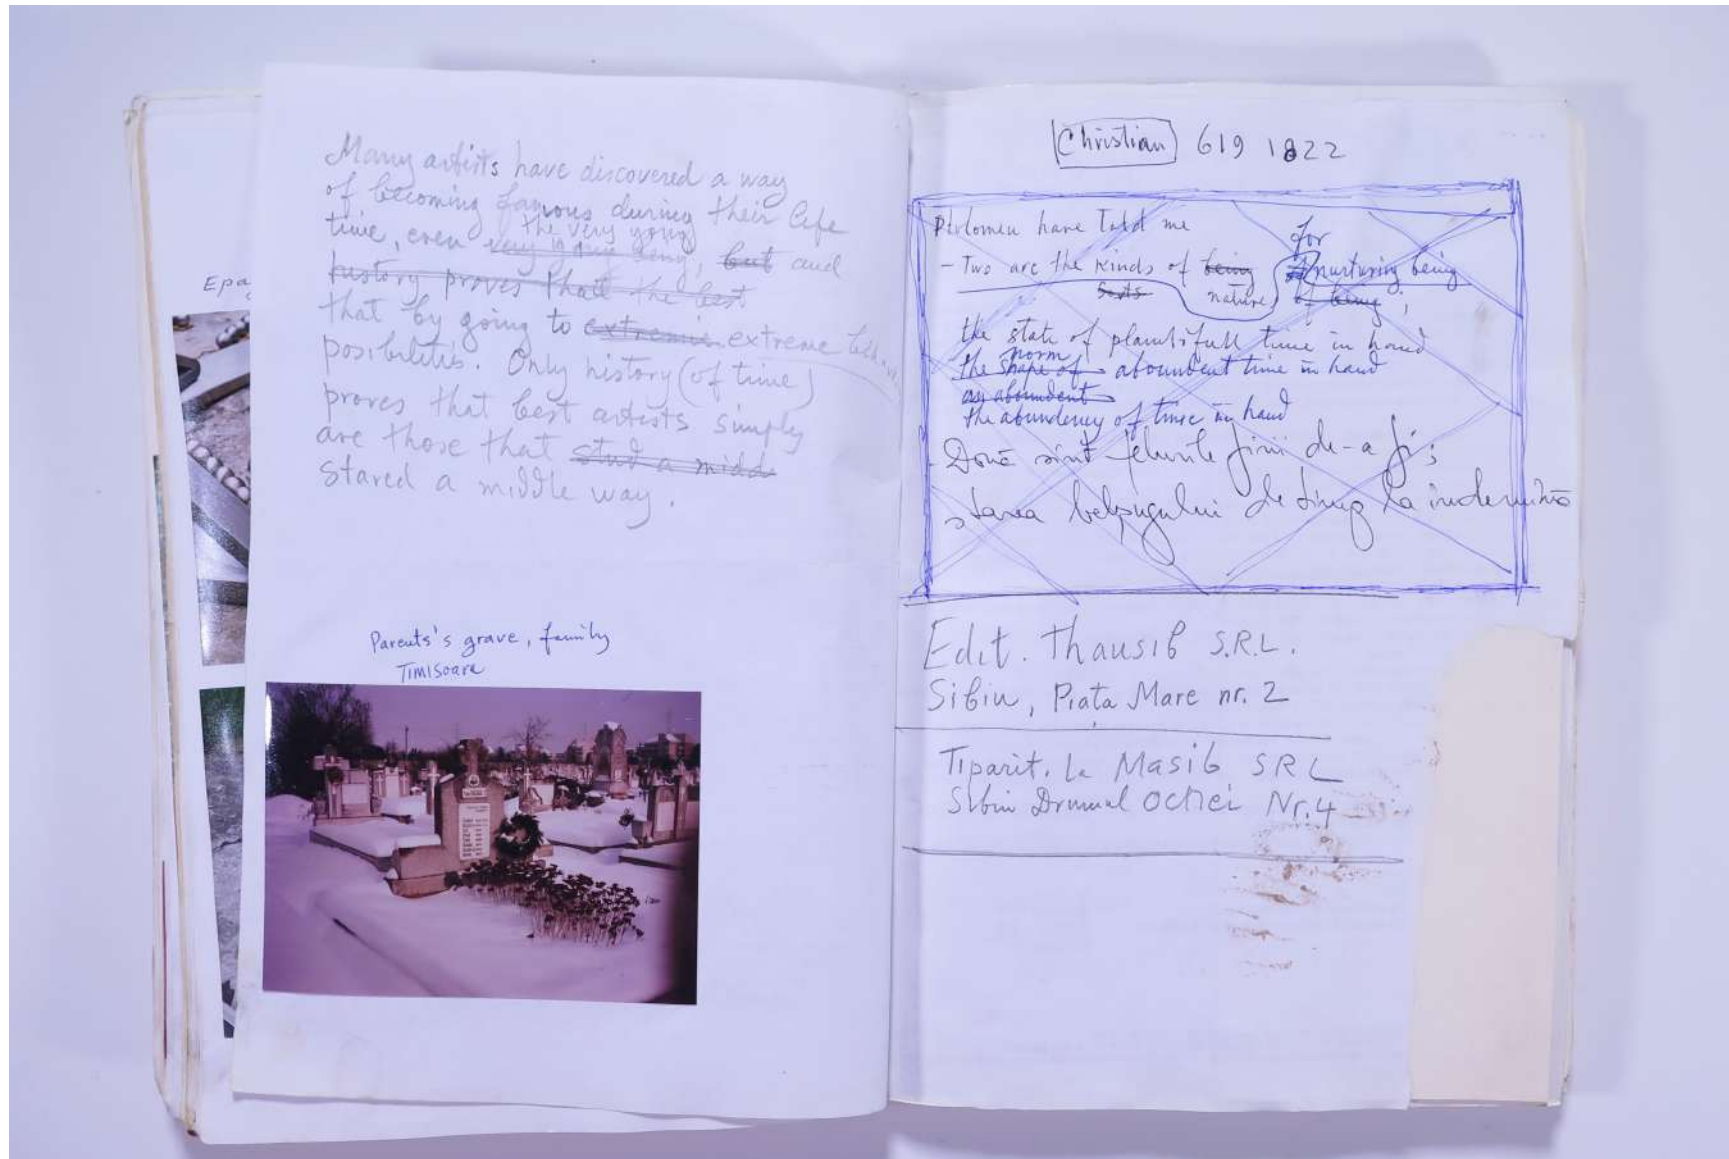 Epa
Many artists have discovered a way
of becoming famous during their life
the very young
time, even very young being, but and
history proves that the best
that by going to extreme extreme
posibilitis. Only history (of time)
proves that best artists simply
are those that stud a midd
stared a middle way.
Parents's grave, family
Timisoara
Christian 619 1822
have told me
for
- Two are the kinds of being nurturing being
sorts nature of being ;
the state of time in hand
norm
the shape of aboundent time in hand
an aboundent
the abundency of time in hand
- Două sînt felurile firii de-a fi ;
starea belșugului de timp la indemînă
Edit. Thausib S.R.L.
Sibiu, Piața Mare nr. 2
Tiparit. la Masib SRL
Sibiu Drumul Ocnei Nr. 4